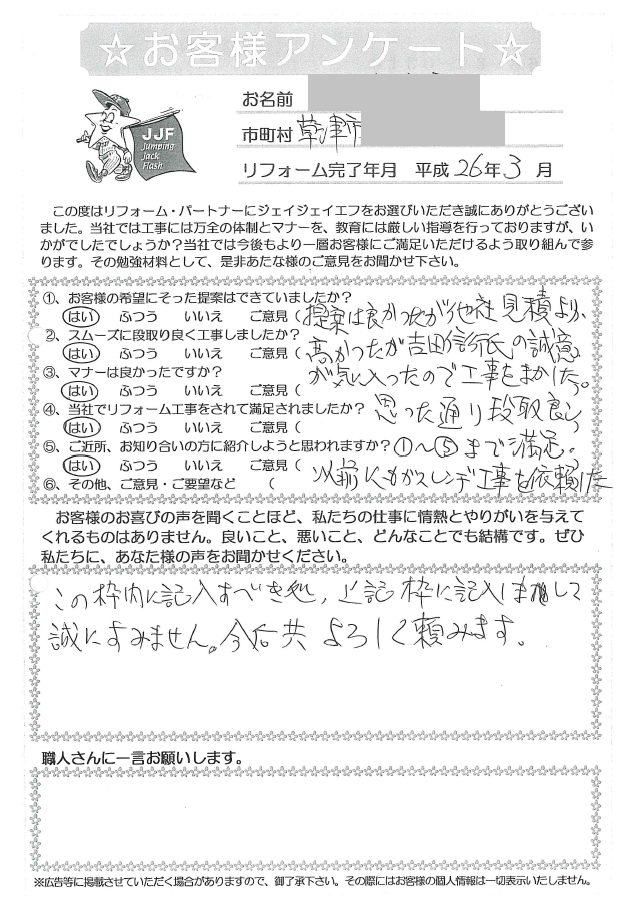 ☆お客様アンケート☆
お名前
市町村 草津市
リフォーム完了年月 平成26年3月
JJF
Jumping
Jack
Flash
この度はリフォーム・パートナーにジェイジェイエフをお選びいただき誠にありがとうござい
ました。当社では工事には万全の体制とマナーを、教育には厳しい指導を行っておりますが、い
かがでしたでしょうか？当社では今後もより一層お客様にご満足いただけるよう取り組んで参
ります。その勉強材料として、是非あなた様のご意見をお聞かせ下さい。
①、お客様の希望にそった提案はできていましたか？
はい ふつう いいえ ご意見（提案は良かったが他社見積より、
②、スムーズに段取り良く工事しましたか？
はい ふつう いいえ ご意見（高かったが吉田 氏の誠意
③、マナーは良かったですか？ が気に入ったので工事をまかした。
はい ふつう いいえ ご意見（
④、当社でリフォーム工事をされて満足されましたか？ 思った通り段取良し
はい ふつう いいえ ご意見（
⑤、ご近所、お知り合いの方に紹介しようと思われますか？①〜⑤まで満足。
はい ふつう いいえ ご意見（以前にもガスレンヂ工事を依頼した
⑥、その他、ご意見・ご要望など （
お客様のお喜びの声を聞くことほど、私たちの仕事に情熱とやりがいを与えて
くれるものはありません。良いこと、悪いこと、どんなことでも結構です。ぜひ
私たちに、あなた様の声をお聞かせください。
この枠内に記入すべき処，上記枠に記入して
誠にすみません。今后共よろしく頼みます。
職人さんに一言お願いします。
※広告等に掲載させていただく場合がありますので、御了承下さい。その際にはお客様の個人情報は一切表示いたしません。